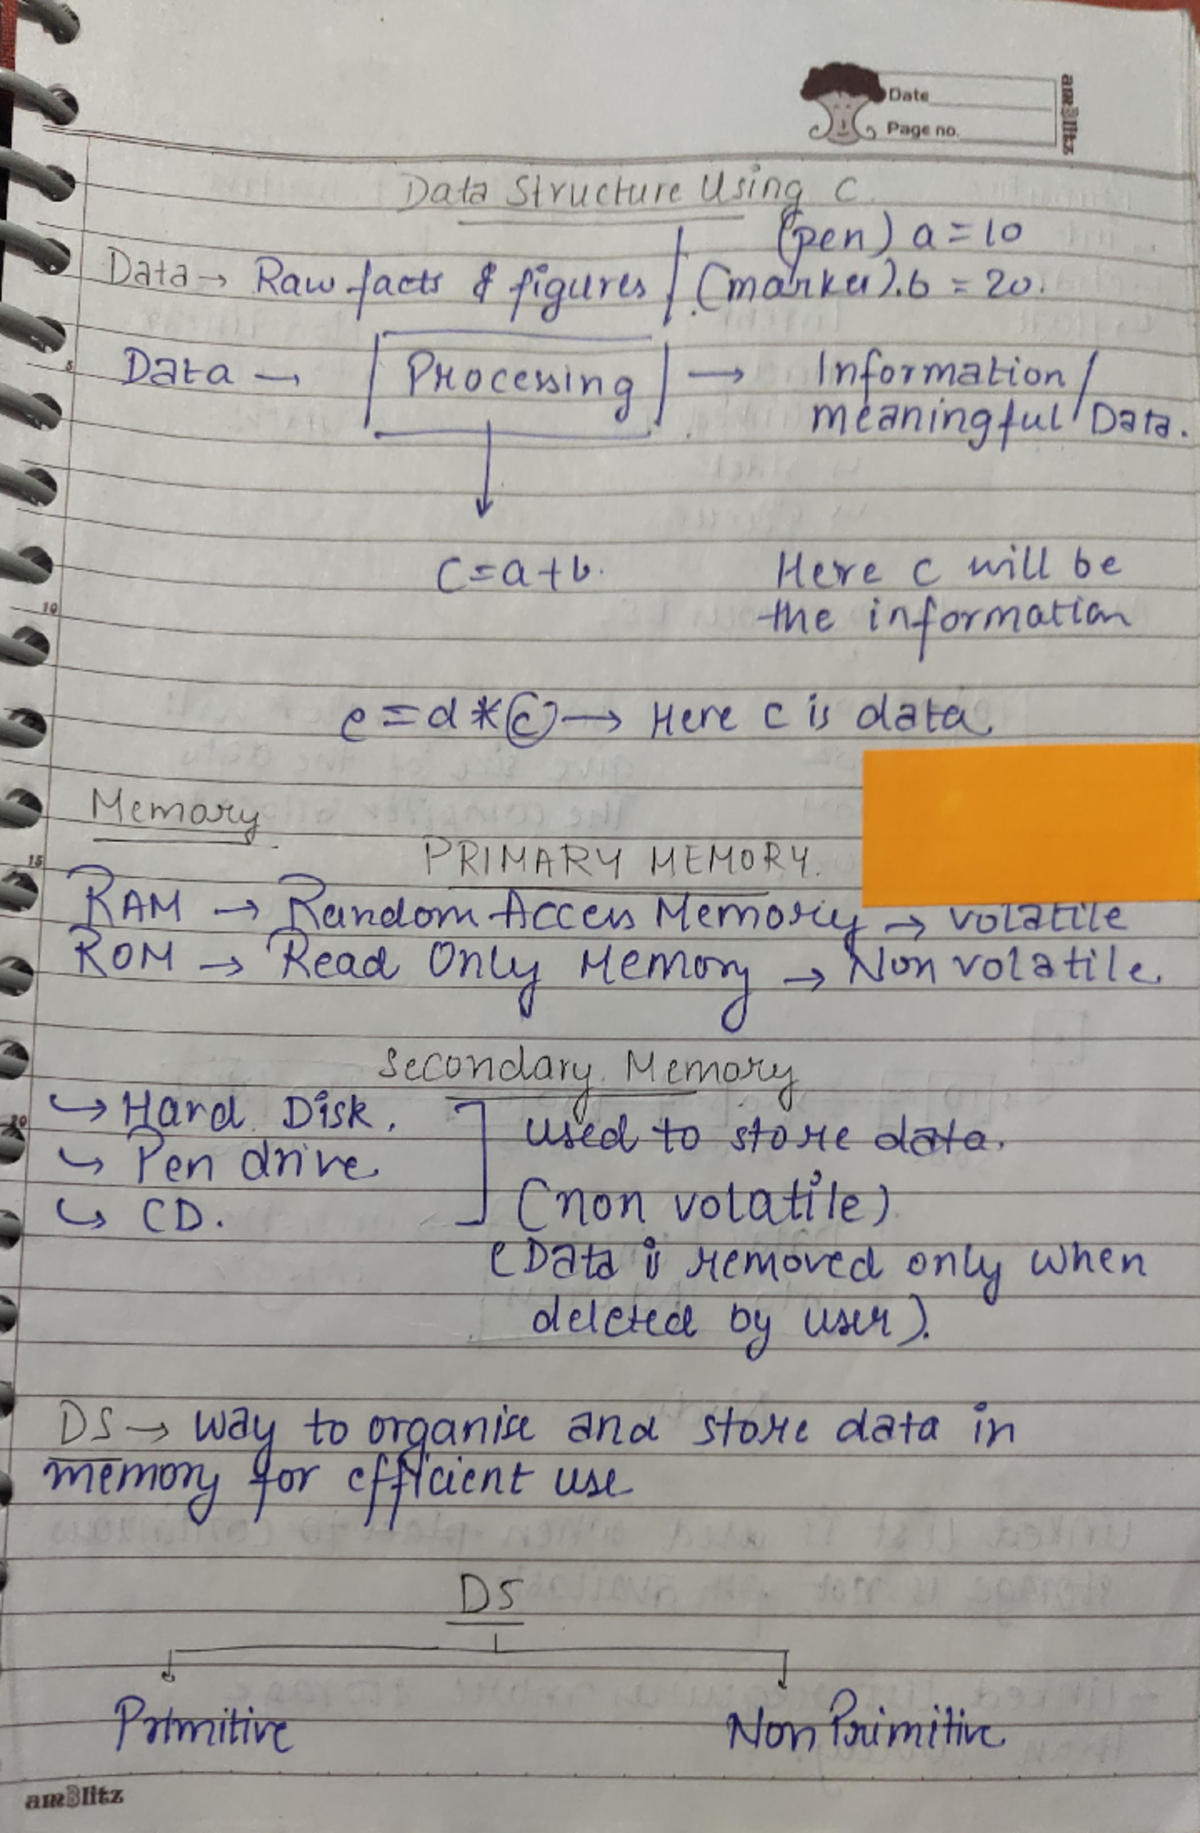 Date
Page no.
am3litz
Data Structure Using C.
(pen) a = 10
Data → Raw facts & figures / (marker). b = 20.
Data → Processing → Information /
meaningful Data.
c = a + b.
Here c will be
the information
e = d * c → Here c is data
Memory
PRIMARY MEMORY.
RAM → Random Access Memory → volatile
ROM → Read Only Memory → Non volatile.
Secondary Memory
↪ Hard Disk.
↪ Pen drive
↪ CD.
used to store data.
(non volatile)
(Data is removed only when
deleted by user).
DS → way to organise and store data in
memory for efficient use
DS
Primitive
Non Primitive
am3litz
5
10
15
20